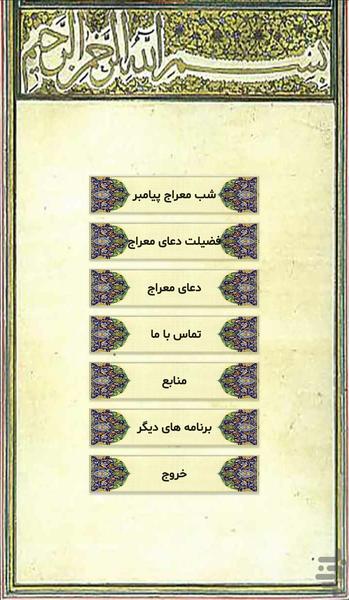 بسم الله الرحمن الرحیم
شب معراج پیامبر
فضیلت دعای معراج
دعای معراج
تماس با ما
منابع
برنامه های دیگر
خروج